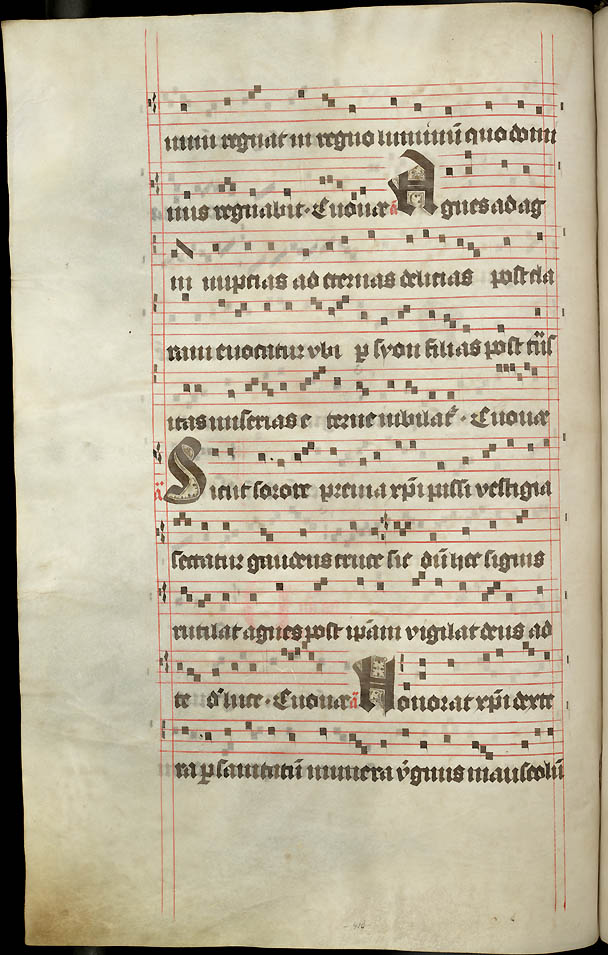 num regnat in regno luminū quo domi
nus regnabit · Euouae a Agnes ad ag
ni nuptias ad eternas delicias post cla
ram euocatur vbi p syon filias post
uas miserias e terne iubilat · Euouae
a Sicut sorore premia xp̄i pussi vestigia
sectatur gaudens cruce sic dū hec signis
rutilat agnes post ip̄am vigilat deus ad
te d luce · Euouae a Honorat xp̄i dexte
ra p sanitatū munera v̓ginis mausoleū